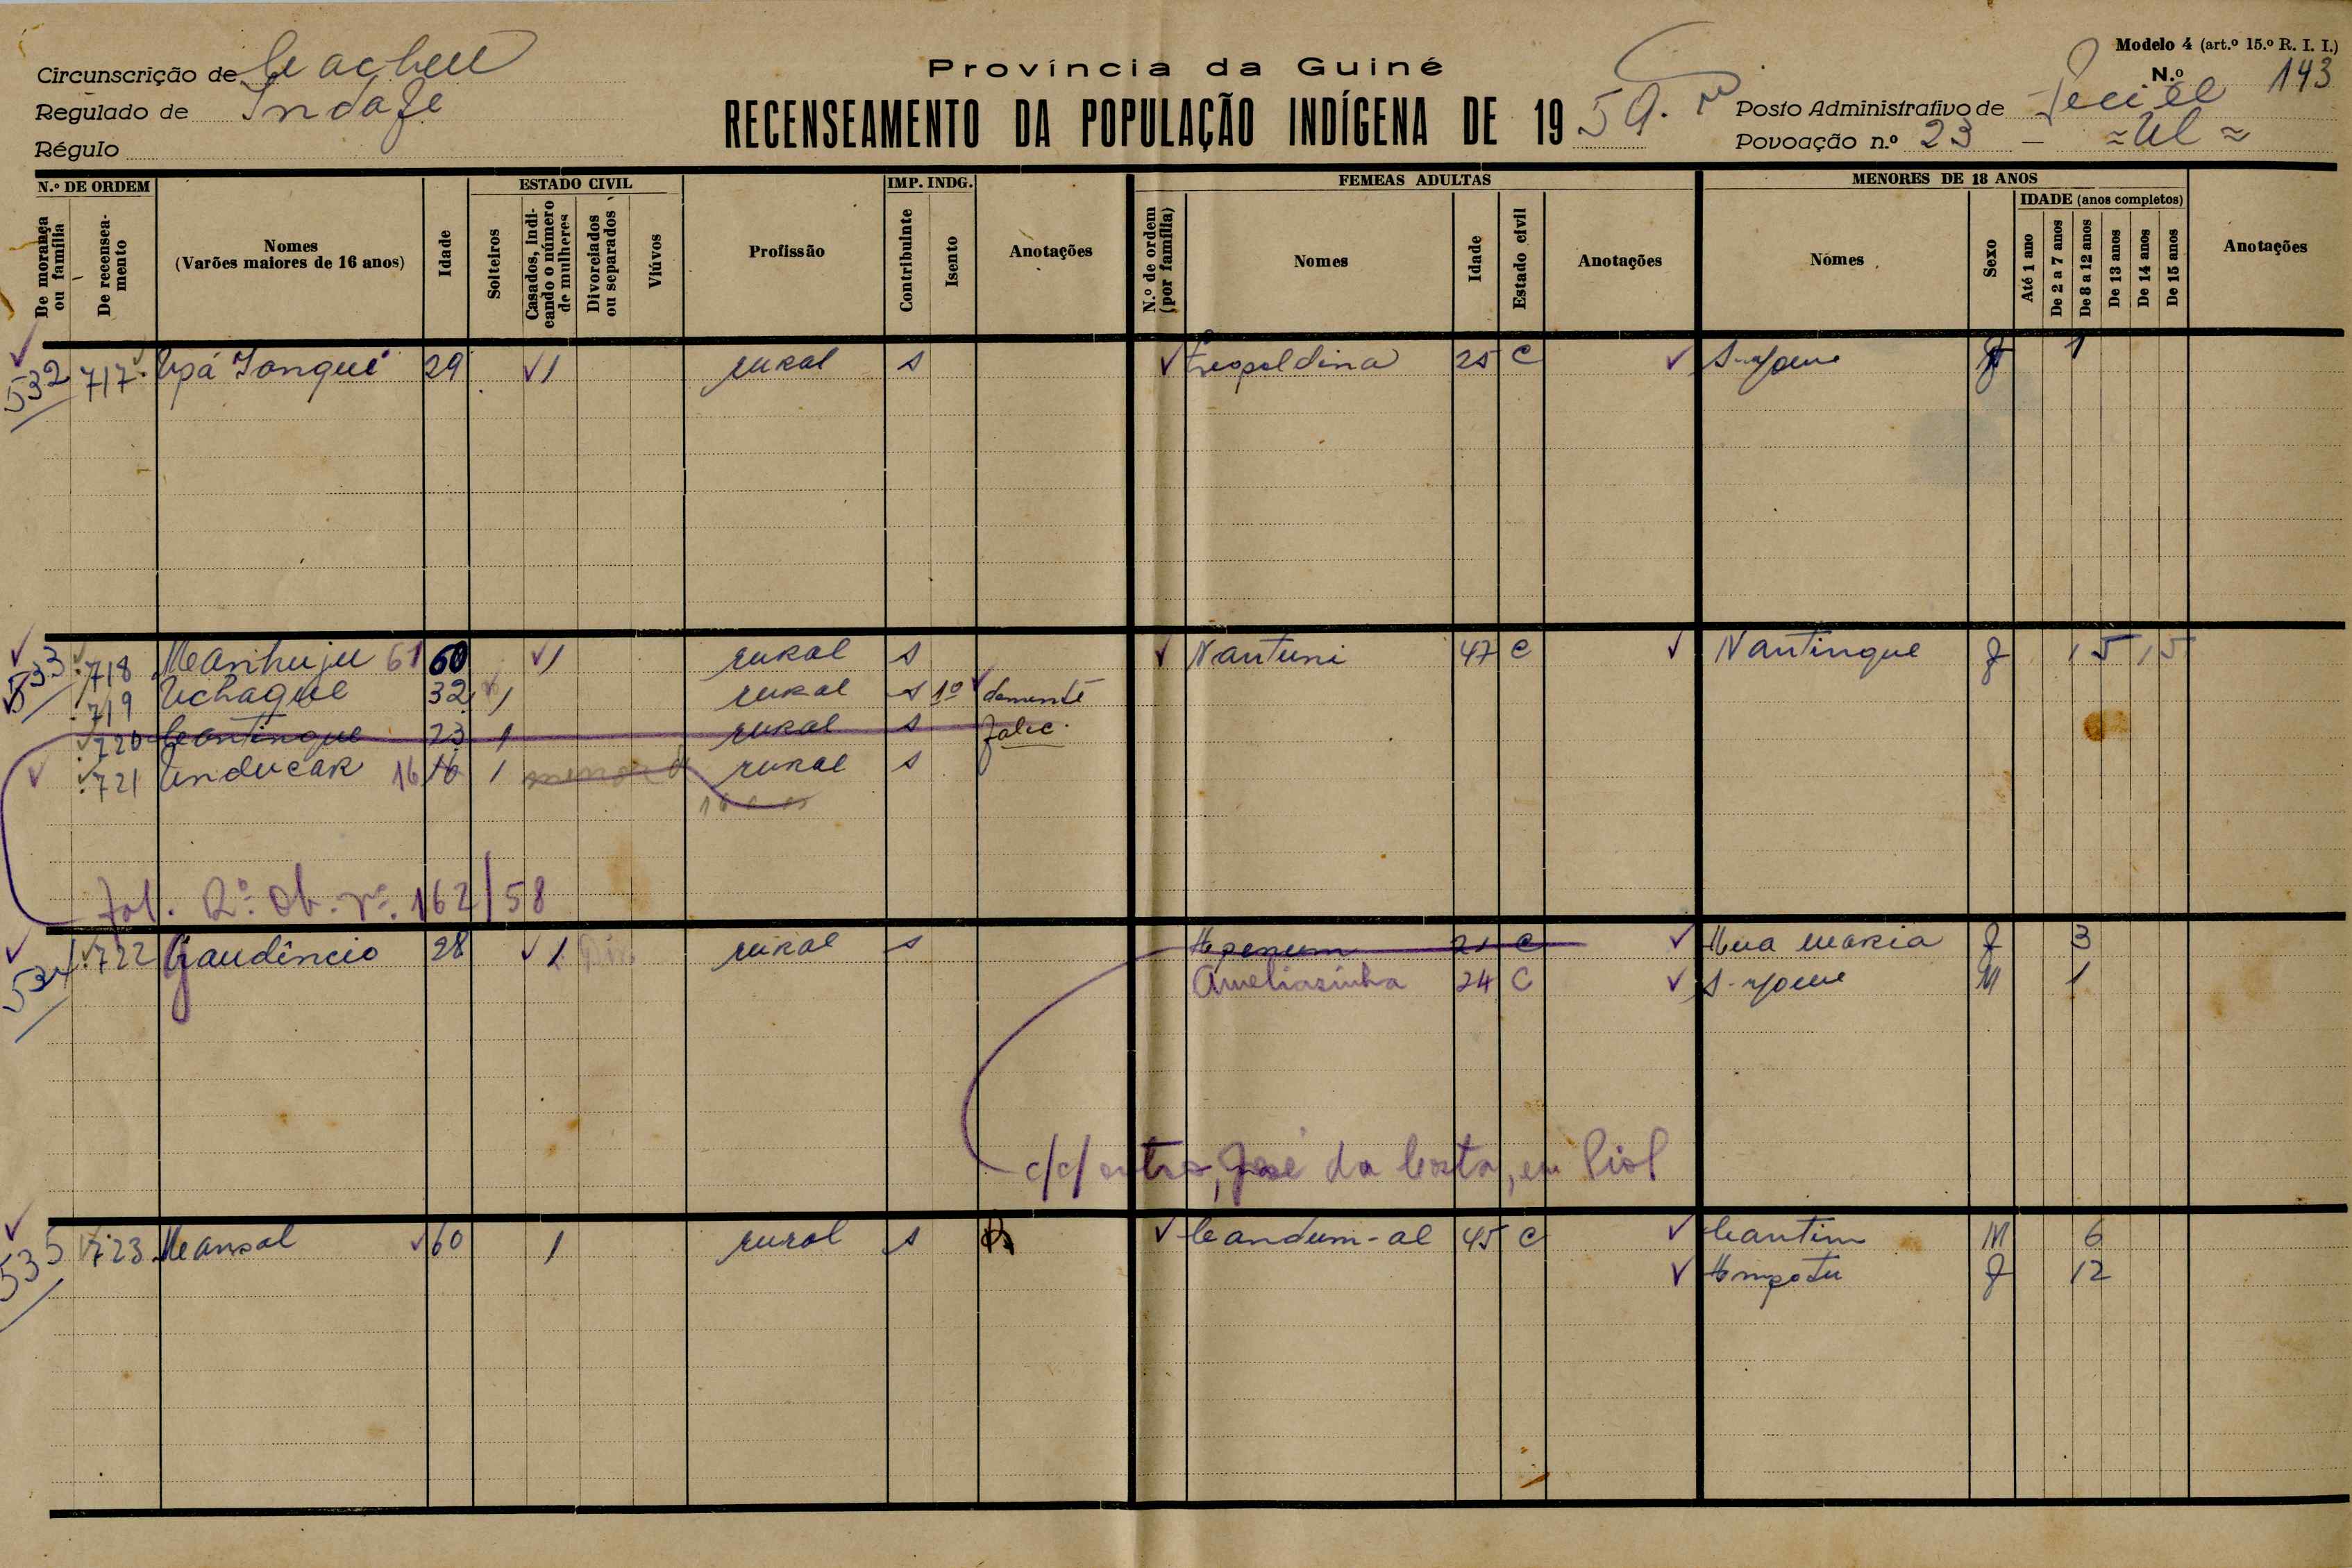 Modelo 4 (art.º 15.º R. I. I.)
Circunscrição de Cacheu
Província da Guiné
N.º 143
Regulado de
RECENSEAMENTO DA POPULAÇÃO INDÍGENA DE 1959.
Posto Administrativo de
Régulo
Povoação n.º 23 -
N.º DE ORDEM
De morança ou família
De recenseamento
Nomes
(Varões maiores de 16 anos)
Idade
ESTADO CIVIL
Solteiros
Casados, indicando o número de mulheres
Divorciados ou separados
Viúvos
Profissão
IMP. INDG.
Contribuinte
Isento
Anotações
FEMEAS ADULTAS
N.º de ordem (por família)
Nomes
Idade
Estado civil
Anotações
MENORES DE 18 ANOS
Nomes
Sexo
IDADE (anos completos)
Até 1 ano
De 2 a 7 anos
De 8 a 12 anos
De 13 anos
De 14 anos
De 15 anos
Anotações
532 717 Upá Tanqué 29 1 rural s Leopoldina 25 C S-nome F 1
533 718 Manhuju 61 60 1 rural s Nantuni 47 C Nantingue F 15 15
719 Uchague 32 1 rural s 1º demente
720 Cantingue 23 1 rural s falec.
721 Unducar 16 16 1 rural s
Fal. Rº. Ob. nº. 162/58
534 722 Gaudêncio 28 1 rural s 21 C Maria F 3
Ameliazinha 24 C S-nome M 1
c/c/ outro, José da Costa, em
535 723 Mansal 60 1 rural s Candum-al 45 C Cantim M 6
F 12